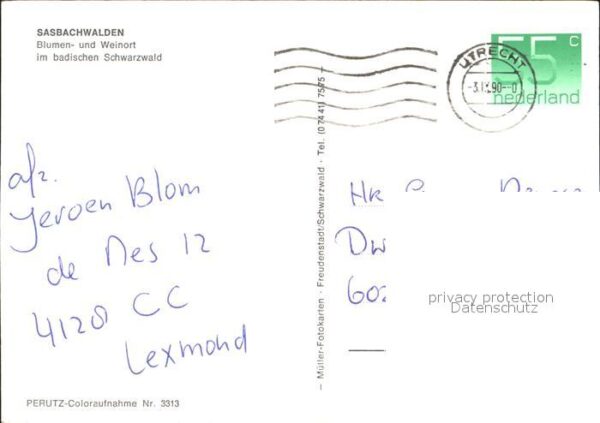 SASBACHWALDEN
Blumen- und Weinort
im badischen Schwarzwald
UTRECHT
55 c
nederland
afz.
Jeroen Blom
de Nes 12
4128 CC
Lexmond
Müller-Fotokarten · Freudenstadt/Schwarzwald · Tel. (0 74 41) 75 75
Hr
Dw
60
privacy protection
Datenschutz
PERUTZ-Coloraufnahme Nr. 3313